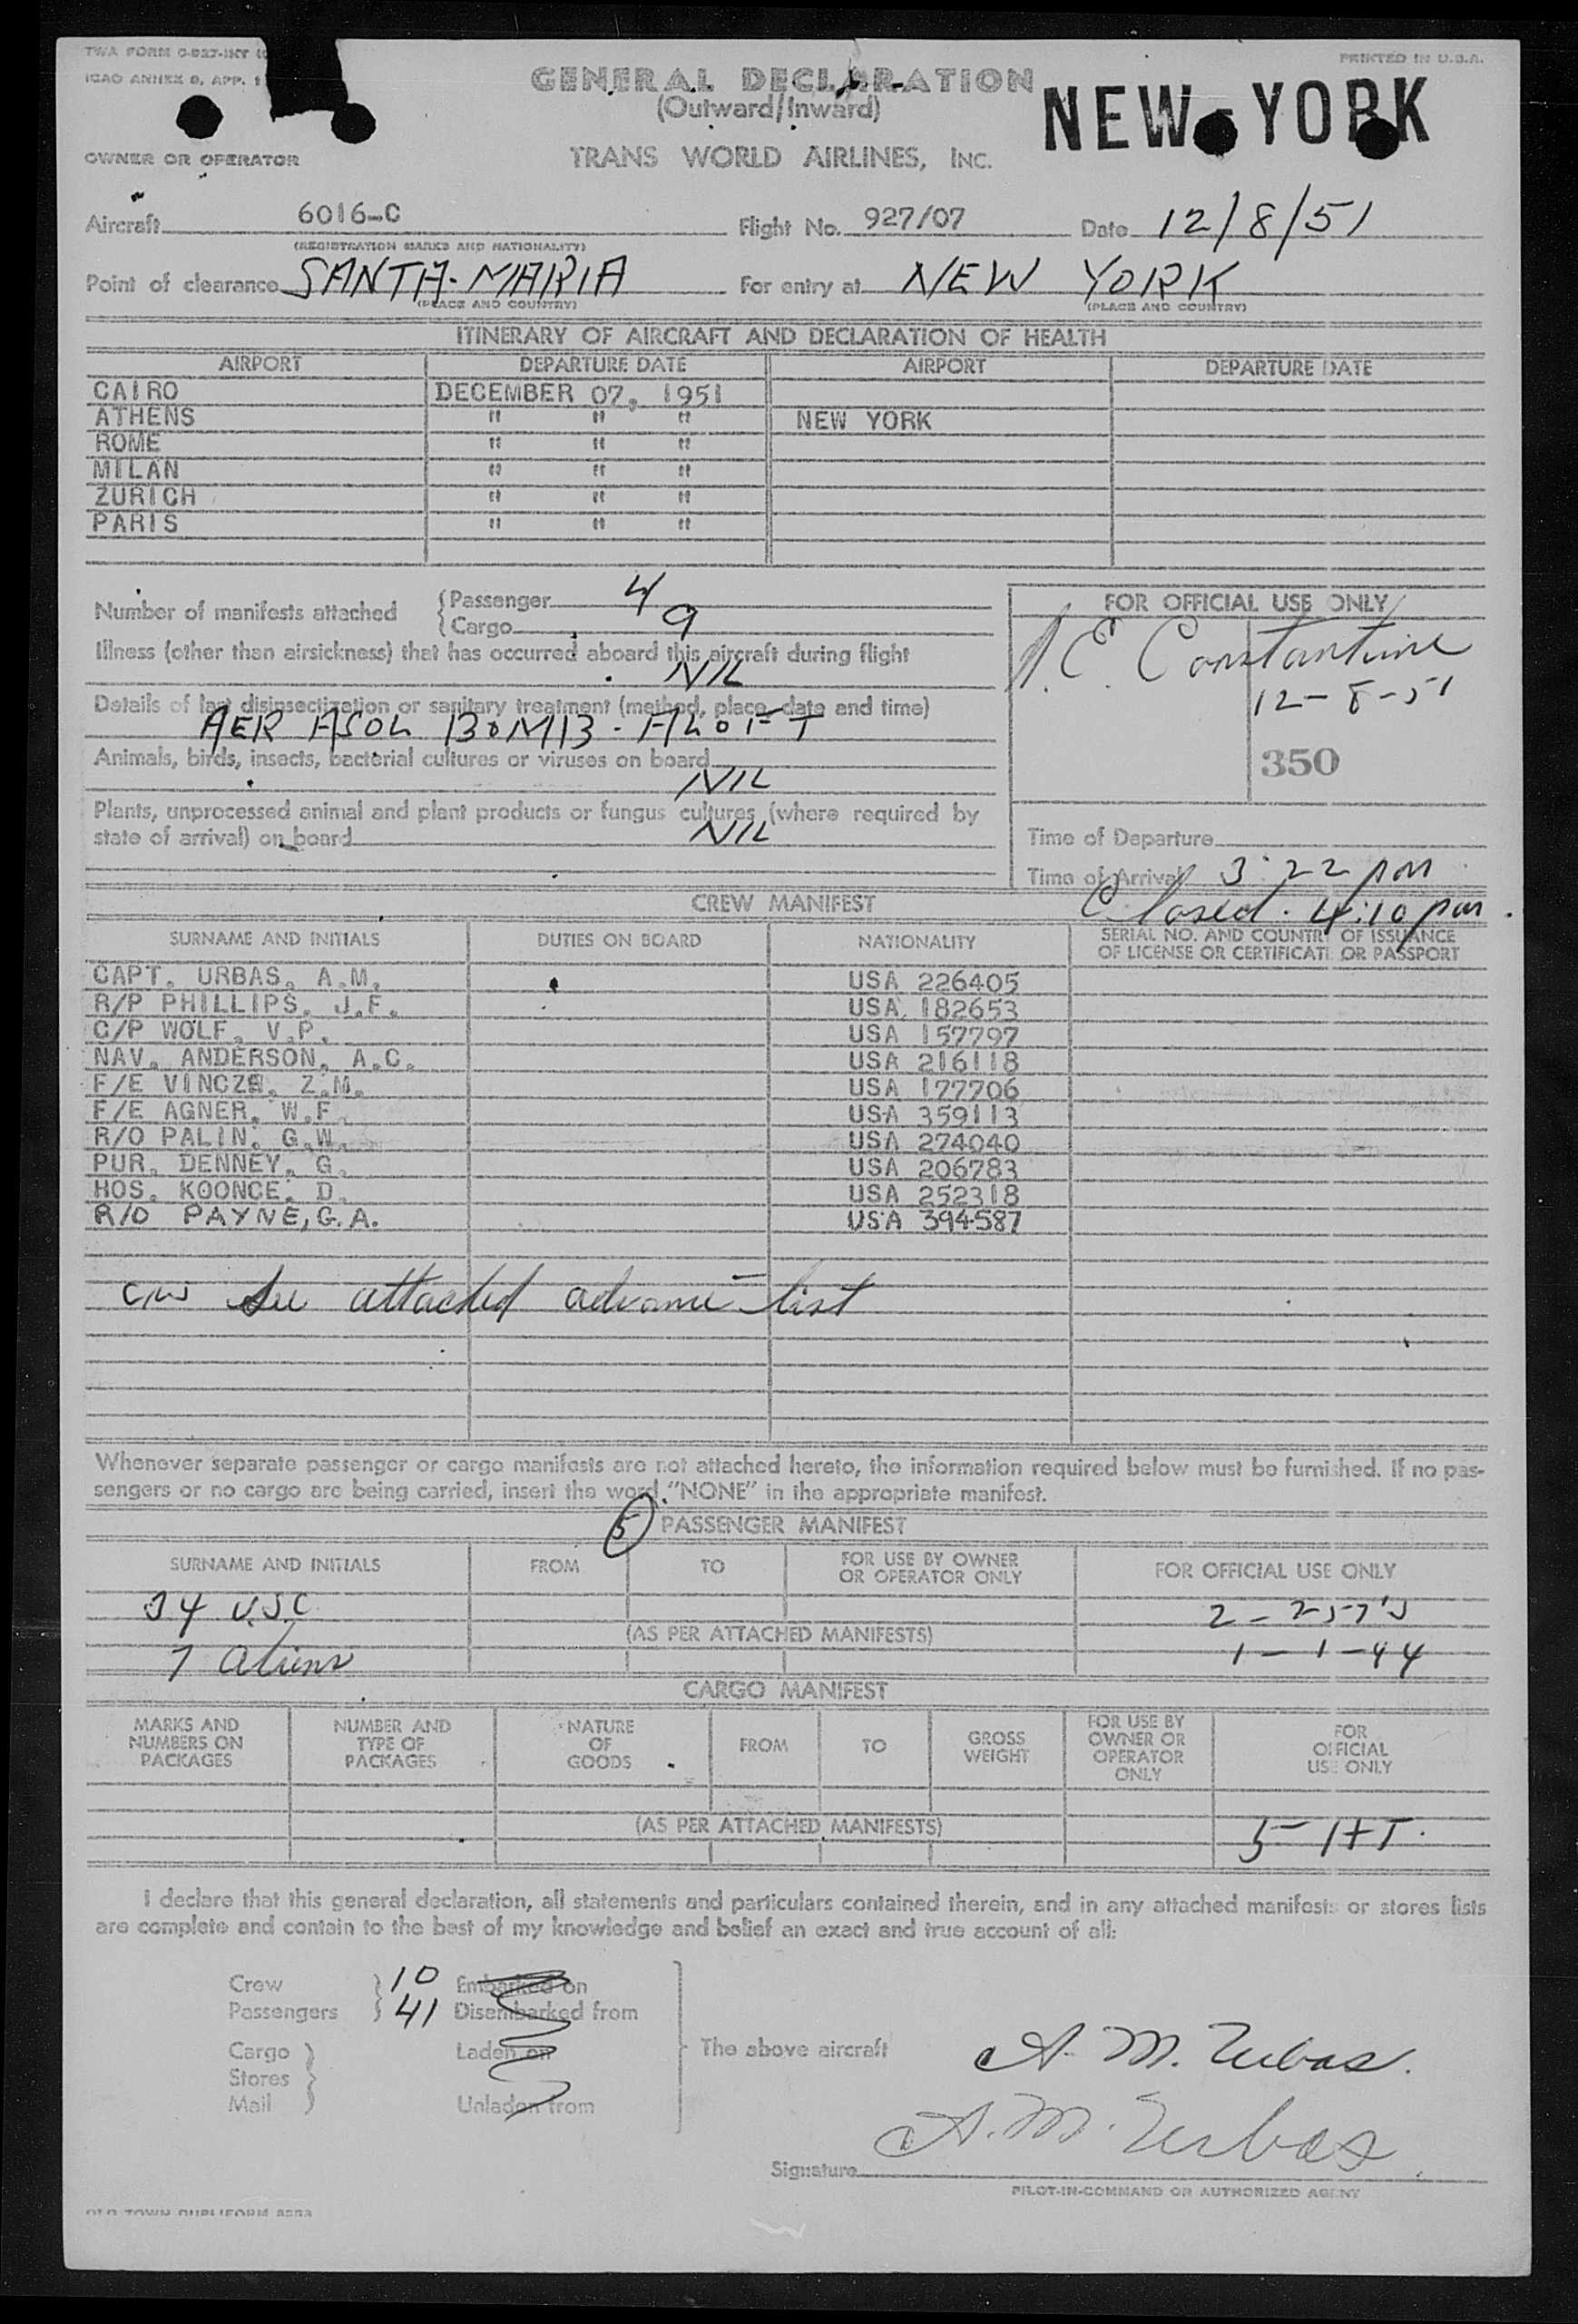 TWA FORM O-927-INT
ICAO ANNEX 9, APP. 1
PRINTED IN U.S.A.
GENERAL DECLARATION
(Outward/Inward)
NEW-YORK
OWNER OR OPERATOR
TRANS WORLD AIRLINES, INC.
Aircraft 6016-C Flight No. 927/07 Date 12/8/51
(REGISTRATION MARKS AND NATIONALITY)
Point of clearance SANTA-MARIA For entry at NEW YORK
(PLACE AND COUNTRY) (PLACE AND COUNTRY)
ITINERARY OF AIRCRAFT AND DECLARATION OF HEALTH
AIRPORT DEPARTURE DATE AIRPORT DEPARTURE DATE
CAIRO DECEMBER 07, 1951
ATHENS " " " NEW YORK
ROME " " "
MILAN " " "
ZURICH " " "
PARIS " " "
Number of manifests attached { Passenger 4
{ Cargo 9
FOR OFFICIAL USE ONLY
Illness (other than airsickness) that has occurred aboard this aircraft during flight
NIL
Constantine
12-8-51
Details of last disinsectization or sanitary treatment (method, place, date and time)
AER ASOL BOMB - ALOFT
Animals, birds, insects, bacterial cultures or viruses on board
NIL
350
Plants, unprocessed animal and plant products or fungus cultures (where required by
state of arrival) on board NIL
Time of Departure
Time of Arrival 3:22 pm
Closed. 4:10 pm.
CREW MANIFEST
SURNAME AND INITIALS DUTIES ON BOARD NATIONALITY SERIAL NO. AND COUNTRY OF ISSUANCE
OF LICENSE OR CERTIFICATE OR PASSPORT
CAPT. URBAS, A.M. USA 226405
R/P PHILLIPS, J.F. USA 182653
C/P WOLF, V.P. USA 157797
NAV. ANDERSON, A.C. USA 216118
F/E VINCZE, Z.M. USA 177706
F/E AGNER, W.F. USA 359113
R/O PALIN, G.W. USA 274040
PUR. DENNEY, G. USA 206783
HOS. KOONCE, D. USA 252318
R/O PAYNE, G.A. USA 394587
See attached advance list
Whenever separate passenger or cargo manifests are not attached hereto, the information required below must be furnished. If no pas-
sengers or no cargo are being carried, insert the word "NONE" in the appropriate manifest.
5 PASSENGER MANIFEST
SURNAME AND INITIALS FROM TO FOR USE BY OWNER
OR OPERATOR ONLY FOR OFFICIAL USE ONLY
34 USC 2 - 257's
(AS PER ATTACHED MANIFESTS)
7 Aliens 1 - 1-44
CARGO MANIFEST
MARKS AND
NUMBERS ON
PACKAGES
NUMBER AND
TYPE OF
PACKAGES
NATURE
OF
GOODS
FROM
TO
GROSS
WEIGHT
FOR USE BY
OWNER OR
OPERATOR
ONLY
FOR
OFFICIAL
USE ONLY
(AS PER ATTACHED MANIFESTS)
I declare that this general declaration, all statements and particulars contained therein, and in any attached manifests or stores lists
are complete and contain to the best of my knowledge and belief an exact and true account of all:
Crew 10 Embarked on
Passengers 41 Disembarked from
Cargo Laden on
Stores
Mail Unladen from
The above aircraft A. M. Urbas.
A. M. Urbas
Signature
PILOT-IN-COMMAND OR AUTHORIZED AGENT